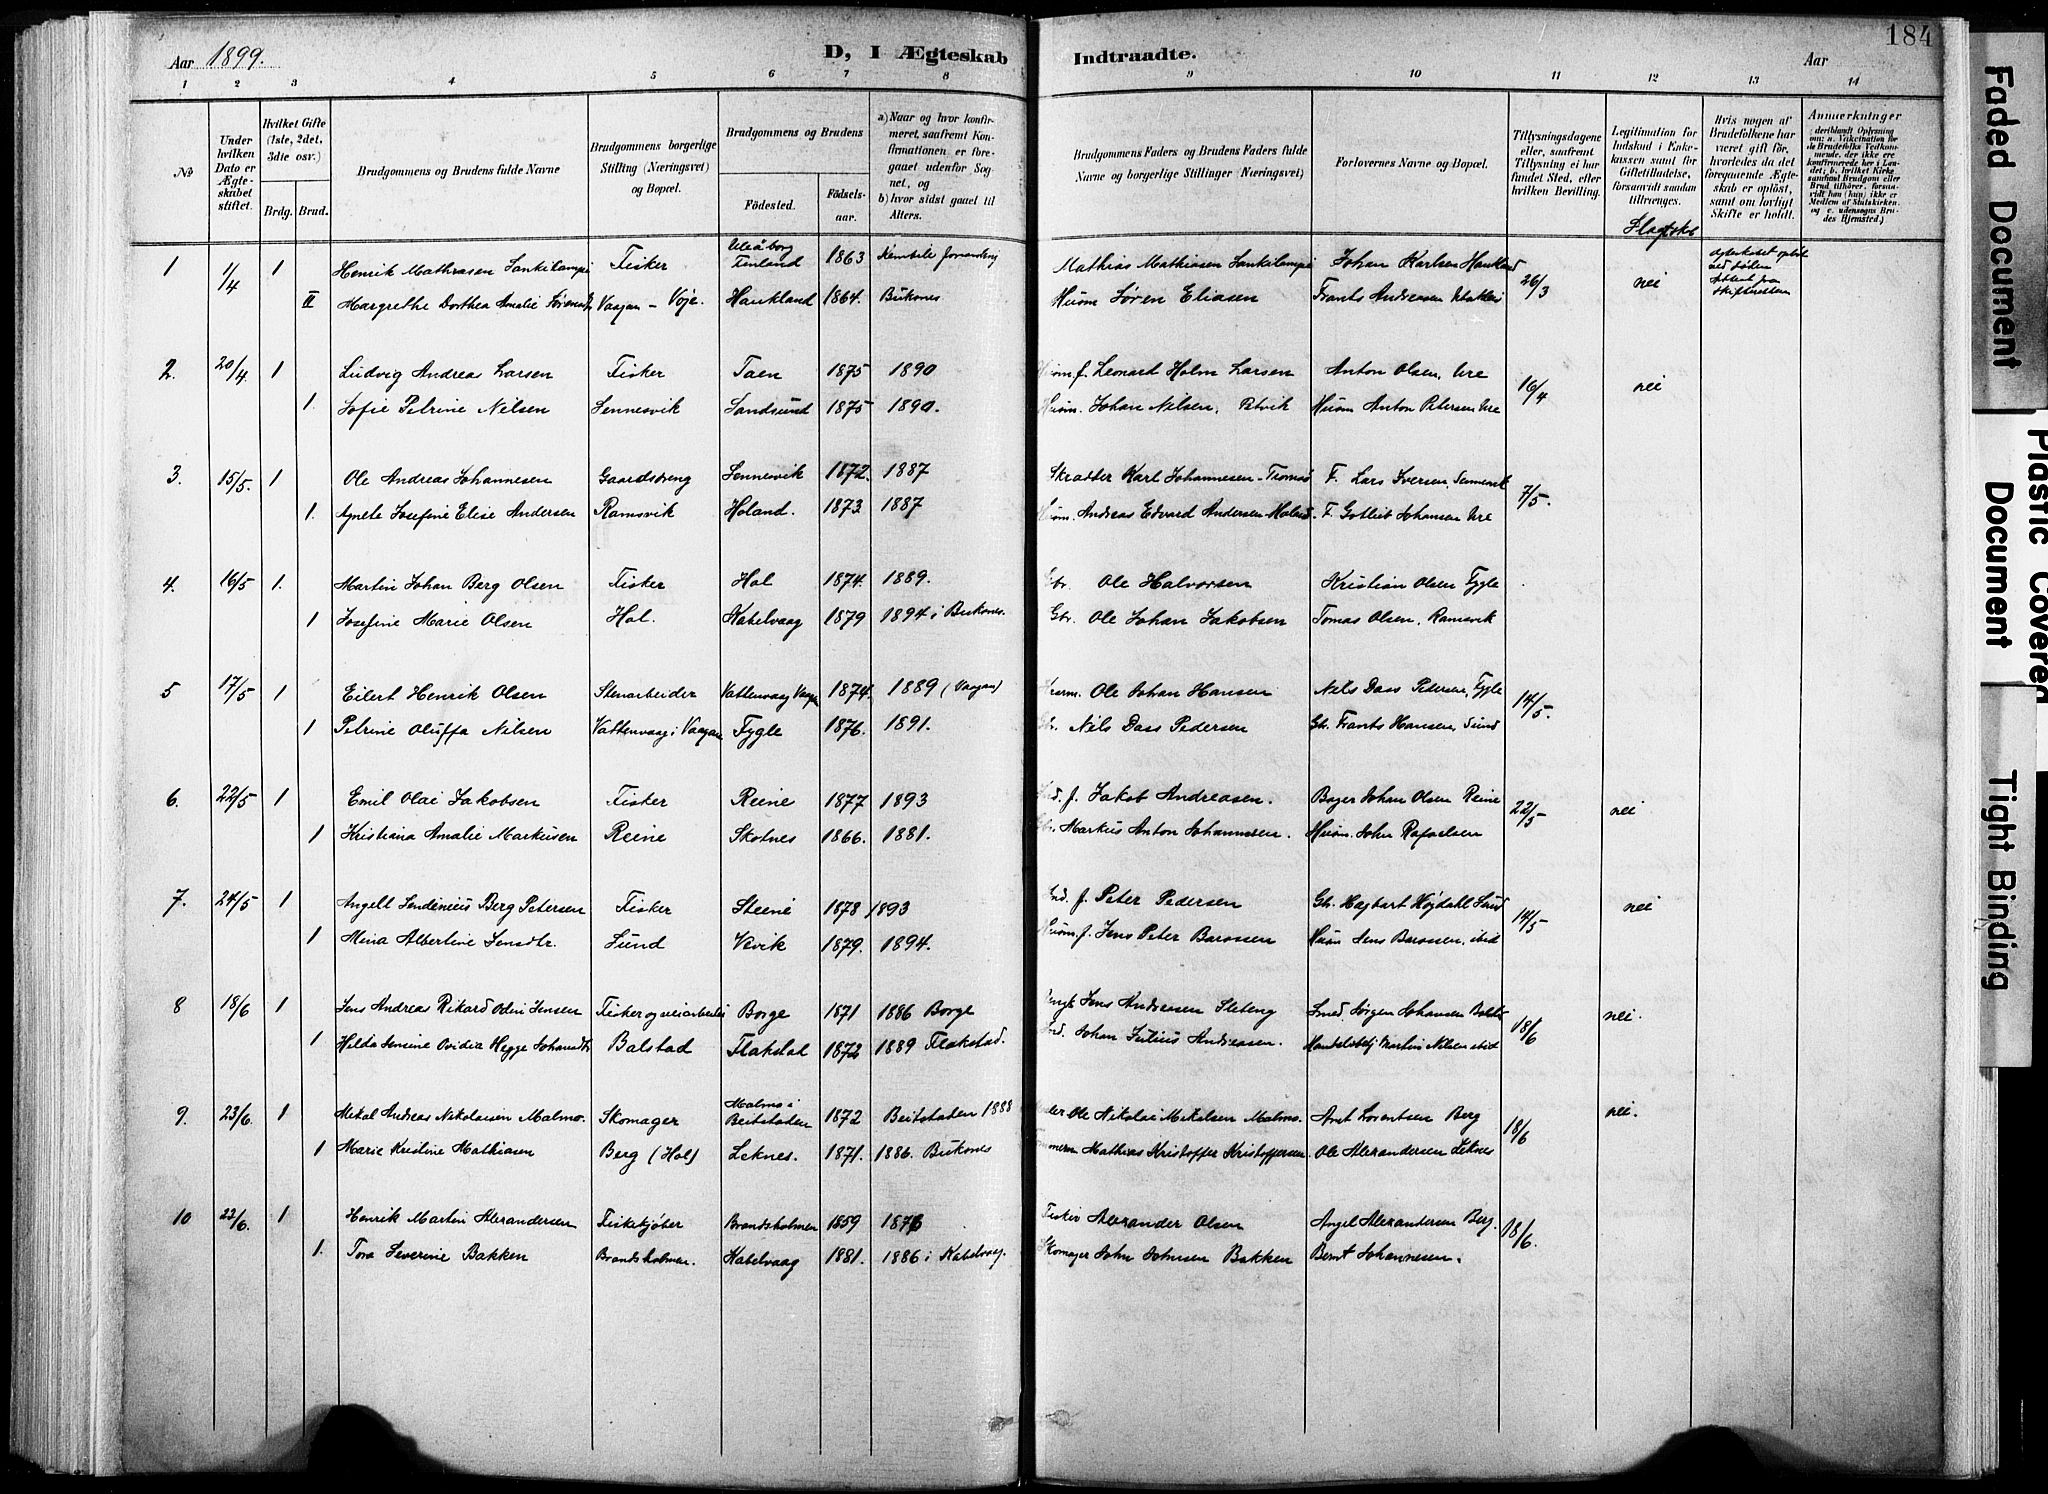 Aar 1899. D, I Ægteskab Indtraadte. Aar 184
1 2 3 4 5 6 7 8 9 10 11 12 13 14
No
Under hvilken Dato er Ægteskabet stiftet.
Hvilket Gifte (1ste, 2det, 3die osv.)
Brdg. Brud.
Brudgommens og Brudens fulde Navne
Brudgommens borgerlige Stilling (Næringsvei) og Bopæl.
Brudgommens og Brudens
Fødested. Fødselsaar.
a) Naar og hvor konfirmeret, saafremt Konfirmationen er foregaaet udenfor Sognet, og
b) hvor sidst gaaet til Alters.
Brudgommens Faders og Brudens Faders fulde Navne og borgerlige Stillinger (Næringsvei)
Forlovernes Navne og Bopæl.
Tillysningsdagene eller, saafremt Tillysning ei har fundet Sted, efter hvilken Bevilling.
Legitimation for Indskud i Enkekassen samt for Giftetilladelse, forsaavidt saadan tiltrænges.
Hvis nogen af Brudefolkene har været gift før, hvorledes da det foregaaende Ægteskab er opløst, samt om lovligt Skifte er holdt.
Anmærkninger
(deriblandt Oplysning om: a. Vakcination for de Brudefolks Vedkommende, der ikke ere konfirmerede her i Landet; b. hvilket Kirkesamfund Brudgom eller Brud tilhører, forsaavidt han (hun) ikke er Medlem af Statskirken, og c. udensogns Brudes Hjemsted.)
1 1/4 1 Henrik Mathiasen Lankilampi Fisker Uleåborg Finland 1863 Mathias Mathiasen Lankilampi Johan Karlsen Haukland 26/3 nei
II Margrethe Dorthea Amalie Vaagan - Voje. Haukland 1864. Buknes Husm Søren Eliasen Frants Andreasen
2. 20/4. 1 Ludvig Andreas Larsen Fisker Taen 1875 1890 f. Leonard Holm Larsen Anton Olsen, Ure 16/4 nei
1. Sofie Petrine Nilsen Sennesvik Sandsund 1875 1890. Husm. Johan Nilsen, Petvik Husm Anton Petersen Ure
3. 15/5. 1 Ole Andreas Johannesen Gaardsdreng Sennesvik 1872. 1887 Skrædder Karl Johannesen - Tromsø F. Lars Iversen, Sennesvik 7/5.
1. Agnete Josefine Elise Andersen Ramsvik Holand. 1873 1887 Andreas Edvard Andersen F. Gotlieb Johansen Ure
4. 16/5 1. Martin Johan Berg Olsen Fisker Hol 1874. 1889. Gbr. Ole Halvorsen Kristian Olsen Fygle
1 Josefine Marie Olsen Hol. Kabelvaag 1879 1894 i Buknes. Gbr. Ole Johan Jakobsen Tomas Olsen, Ramsvik
5 17/5 1 Eilert Henrik Olsen Stenarbeider Vattenvaag Vaagan 1874. 1889 (Vaagan) Ole Johan Hansen Nils Dass Pedersen, Fygle 14/5.
1 Petrine Oluffa Nilsen Vattenvaag i Vaagan Fygle 1876. 1891. Gbr. Nils Dass Pedersen Gbr. Frants Hansen, Sund
6. 22/5 1 Emil Olai Jakobsen Fisker Reine 1877 1893 f. Jakob Andreasen. Bager Johan Olsen Reine 22/5 nei
1 Kristiana Amalie Markusen Reine Skotnes 1866. 1881. Gbr. Markus Anton Johannesen. Husm. John Rafaelsen
7. 24/5 1 Angell Berg Petersen Fisker Steine 1878 1893 Ind. f. Peter Pedersen Gbr. Hagbart Højdahl Sund 14/5 nei
1 Mina Albertine Jensdtr. Sund Vevik 1879. 1894. Husm. f. Jens Peter Barossen Husm Jens Barossen, ibid
8 18/6 1 Jens Andreas Rikard Odin Jensen Fisker og veiarbeider Borge 1871 1886 Borge Jens Andreasen Sleteng Smed. Jørgen Johansen 18/6 nei.
1 Hilda Jensine Ovidia Hegge Johansdtr Balstad Flakstad 1872 1889 Flakstad. Ind. Johan Julius Andreasen. Martin Nilsen ibid
9. 23/6. 1 Mekal Andreas Nikolaisen Malmo. Skomager Malmo i Beitstaden 1872 Beitstaden 1888 Ole Nikolai Mekalsen Malmo. Aret Lorentsen Berg 18/6 nei.
1 Marie Kristine Mathiasen Berg (Hol) Leknes. 1871. 1886. Buknes Mathias Kristoffer Kristoffersen. Ole Alexandersen Leknes
10 23/6. 1 Henrik Martin Alexandersen Fiskekjøber Brandsholmen 1859 1876 Fisker Alexander Olsen Angel Alexandersen Berg. 18/6.
1. Tora Severine Bakken Brandsholmen. Kabelvaag 1881. 1886 i Kabelvag. Skomager John Johnsen Bakken Bernt Johannesen.
Faded Document
Plastic Covered Document
Tight Binding